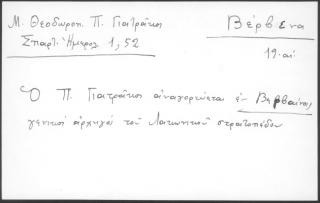 Μ. Θεοδωροπ. Π. Γιατράκος
Σπαρτ. Ημερολ 1, 52
Βέρβενα
19. αι.
Ὁ Π. Γιατράκος ἀναγορεύεται ἐν Βερβαίνοις
γενικὸς ἀρχηγὸς τοῦ Λακωνικοῦ στρατοπέδου